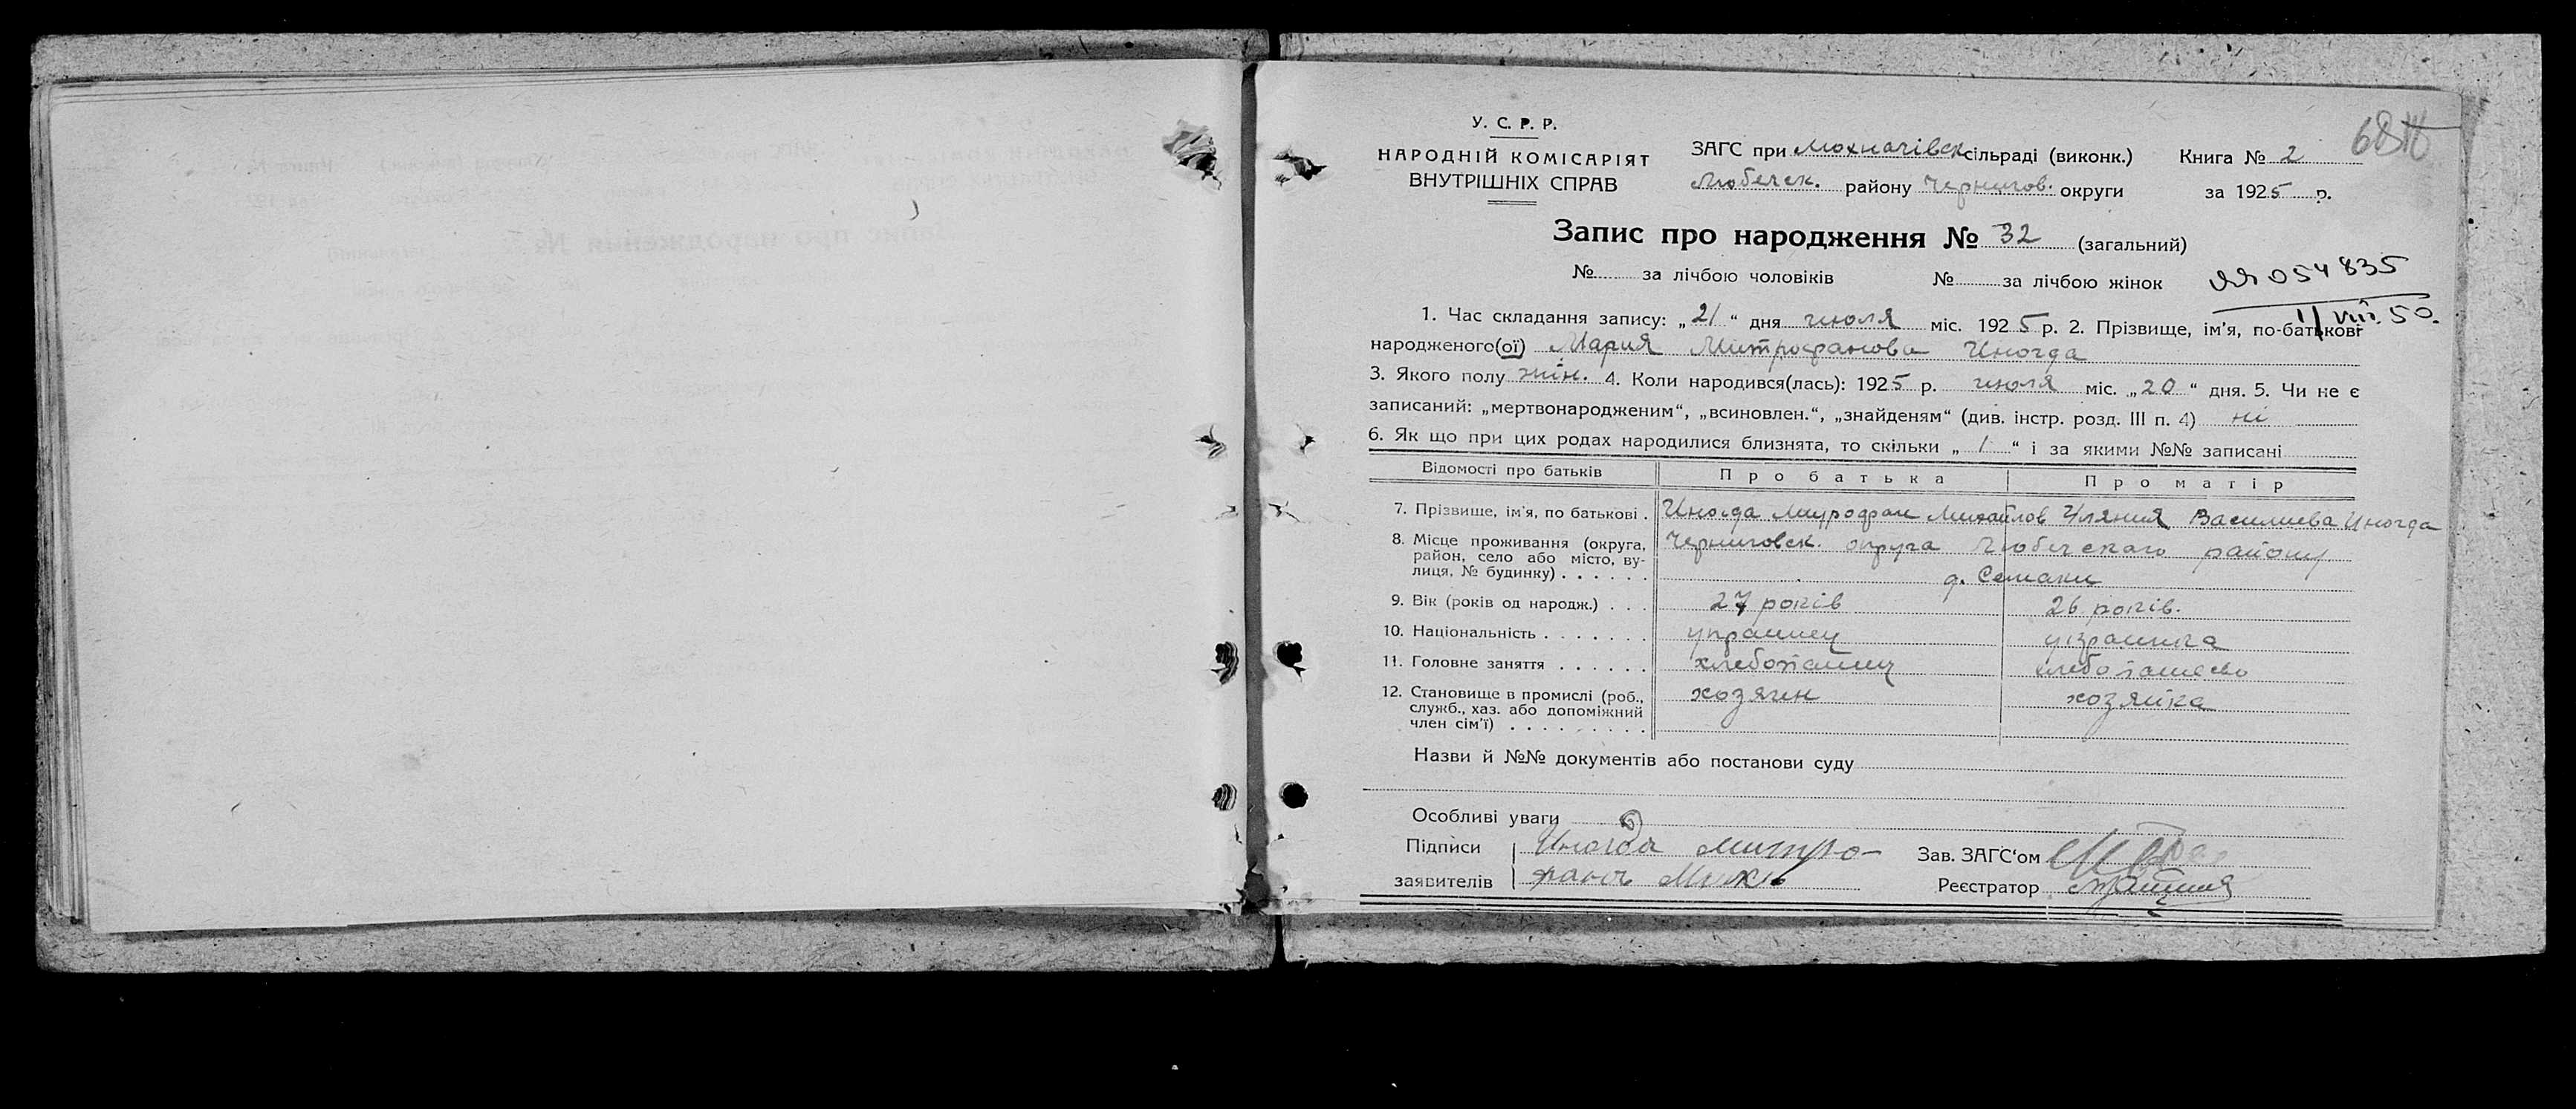 У. С. Р. Р.
НАРОДНІЙ КОМІСАРІЯТ
ВНУТРІШНІХ СПРАВ
ЗАГС при Мохначівск сільраді (виконк.) Книга № 2
Любечск. району Чернигов. округи за 1925 р.
Запис про народження № 32 (загальний)
№ за лічбою чоловіків № за лічбою жінок
ЯЯ 054835
11/VIII.50.
1. Час складання запису: „21“ дня июля міс. 1925 р. 2. Прізвище, ім'я, по-батькові
народженого(ої) Мария Митрофанова Иногда
3. Якого полу жін. 4. Коли народився(лась): 1925 р. июля міс. „20“ дня. 5. Чи не є
записаний: „мертвонародженим“, „всиновлен.“, „знайденям“ (див. інстр. розд. III п. 4) ні
6. Як що при цих родах народилися близнята, то скільки „1“ і за якими №№ записані
Відомості про батьків Про батька Про матір
7. Прізвище, ім'я, по батькові . Иногда Митрофан Михайлов Уляния Василиева Иногда
8. Місце проживання (округа, район, село або місто, вулиця, № будинку) . . . . . . Черниговск. округа Любечскаго району
д. Семаки
9. Вік (років од народж.) . . . 27 років 26 років.
10. Національність . . . . . . . украинец украинка
11. Головне заняття . . . . . . хлебопашец хлебопашево
12. Становище в промислі (роб., служб., хаз. або допоміжний член сім'ї) . . . . . . . . . хозяин хозяйка
Назви й №№ документів або постанови суду
Особливі уваги
Підписи Иногда Митро-
заявителів фанъ Мих
Зав. ЗАГС'ом
Реєстратор